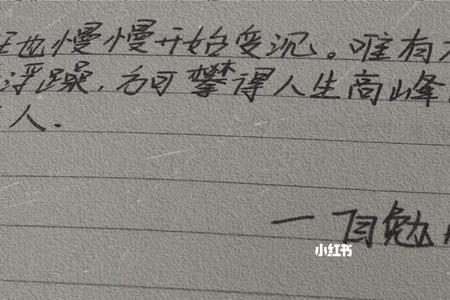 也慢慢开始变沉。唯有
浮躁,方可攀得人生高峰
人.
一自勉
小红书